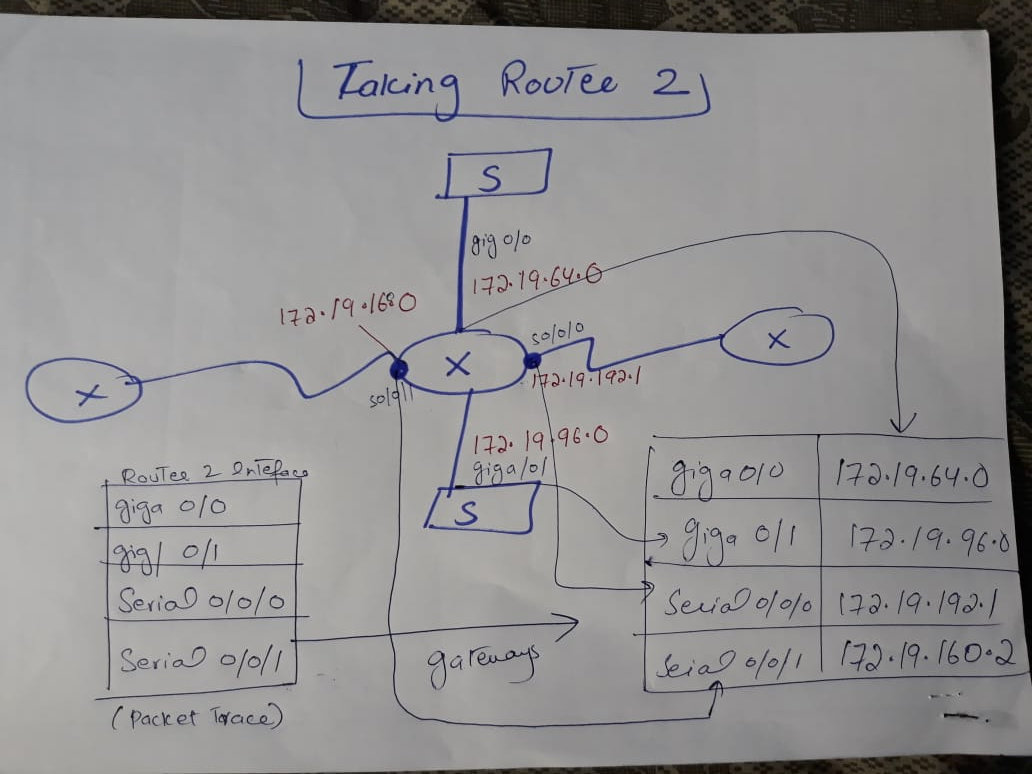 Taking Router 2
S
gig 0/0
172.19.64.0
172.19.1680
X
s0/0/0
172.19.192.1
X
X
s0/0/1
172.19.96.0
giga/01
S
Router 2 Inteface
giga 0/0
gig/ 0/1
Serial 0/0/0
Serial 0/0/1
(Packet Trace)
gateways
giga 0/0 172.19.64.0
giga 0/1 172.19.96.0
Serial 0/0/0 172.19.192.1
Seial 0/0/1 172.19.160.2